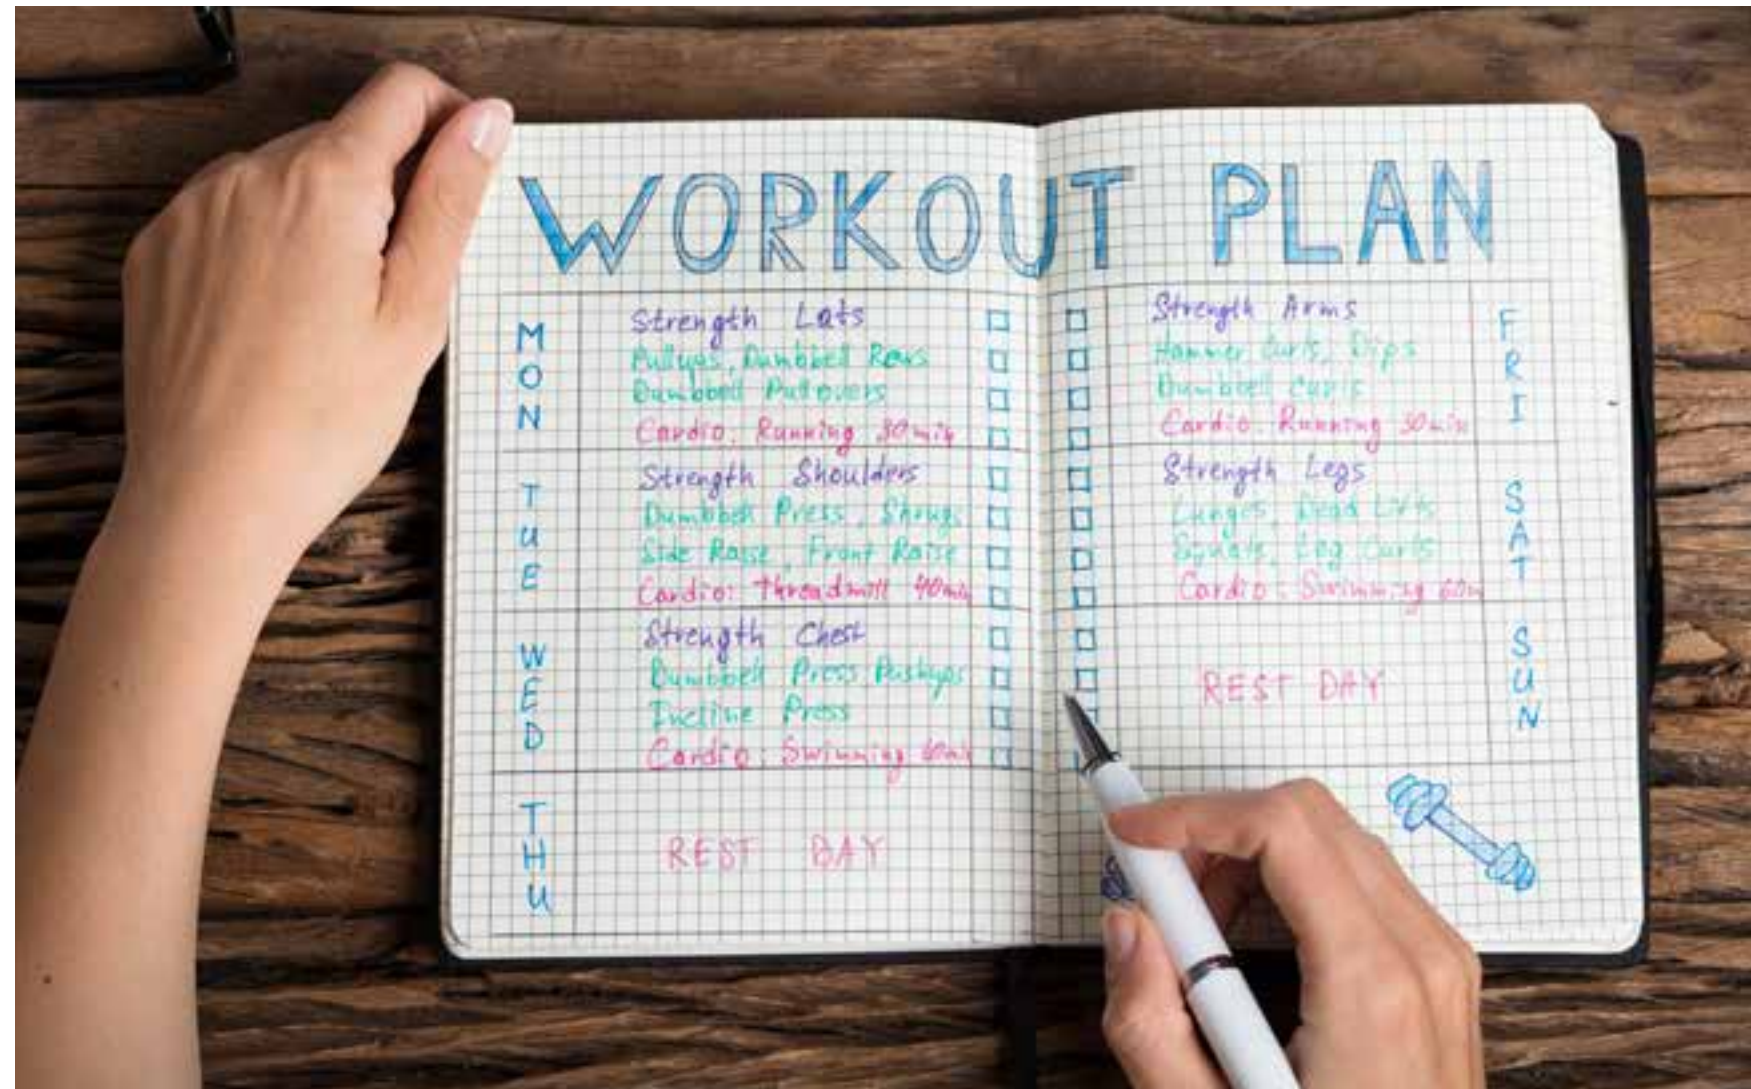 WORKOUT PLAN
MON
Strength Lats
Pullups, Dumbbell Rows
Dumbbell Pullovers
Cardio: Running 30min
TUE
Strength Shoulders
Dumbbell Press, Shrugs
Side Raise, Front Raise
Cardio: Threadmill 40min
WED
Strength Chest
Dumbbell Press Pushups
Incline Press
Cardio: Swimming 60min
THU
REST DAY
FRI
Strength Arms
Hammer Curls, Dips
Dumbbell Curls
Cardio: Running 30min
SAT
Strength Legs
Lunges, Dead Lifts
Squats, Leg Curls
Cardio: Swimming
SUN
REST DAY